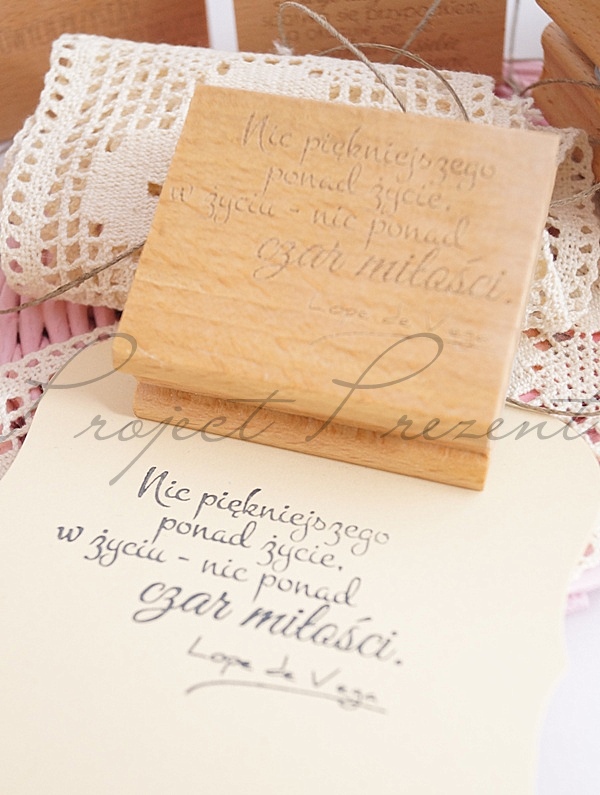 Nic piękniejszego
ponad życie,
w życiu - nic ponad
czar miłości.
Lope de Vega
Project Prezent
Nic piękniejszego
ponad życie,
w życiu - nic ponad
czar miłości.
Lope de Vega